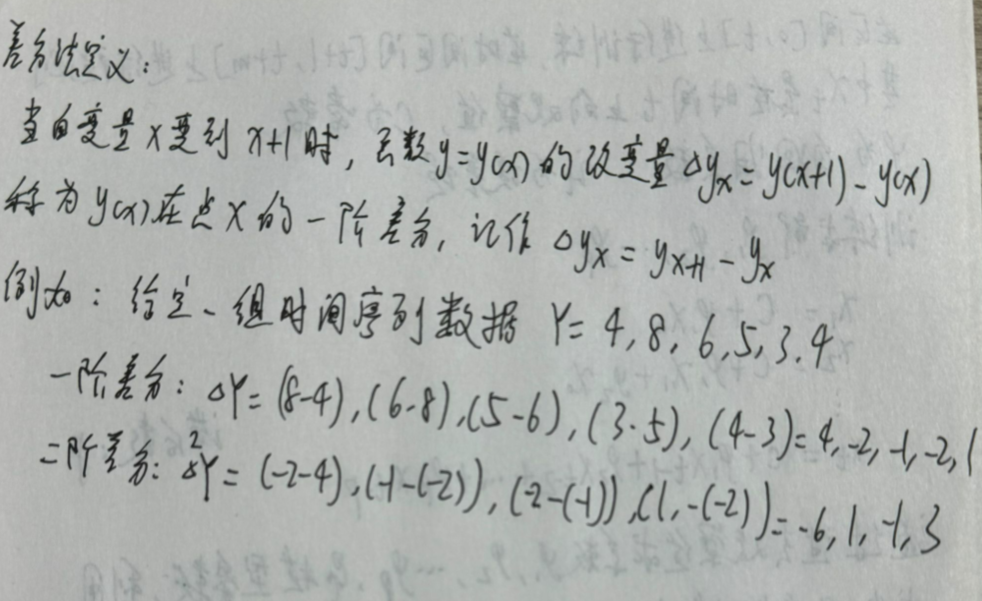 差分法定义:
当自变量x变到x+1时,函数y=y(x)的改变量Δyₓ=y(x+1)-y(x)
称为y(x)在点x的一阶差分,记作 Δyₓ=yₓ₊₁-yₓ
例如:给定一组时间序列数据 Y=4,8,6,5,3,4
一阶差分:ΔY=(8-4),(6-8),(5-6),(3-5),(4-3)=4,-2,-1,-2,1
二阶差分:Δ²Y=(-2-4),(-1-(-2)),(-2-(-1)),(1,-(-2))=-6,1,-1,3